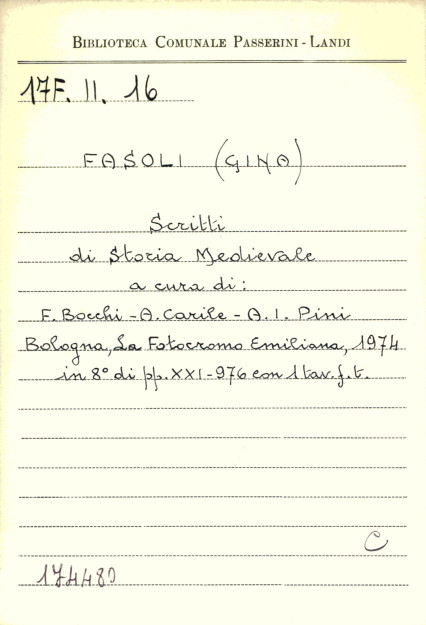 BIBLIOTECA COMUNALE PASSERINI - LANDI
17F. II. 16
FASOLI (GINA)
Scritti
di Storia Medievale
a cura di:
F. Bocchi - A. Carile - A. I. Pini
Bologna, La Fotocromo Emiliana, 1974
in 8° di pp. XXI-976 con 1 tav. f. t.
C
174480